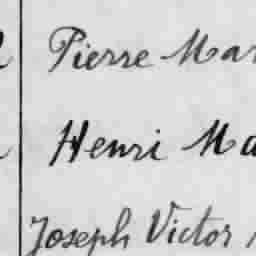 Pierre Mar
Henri Ma
Joseph Victor